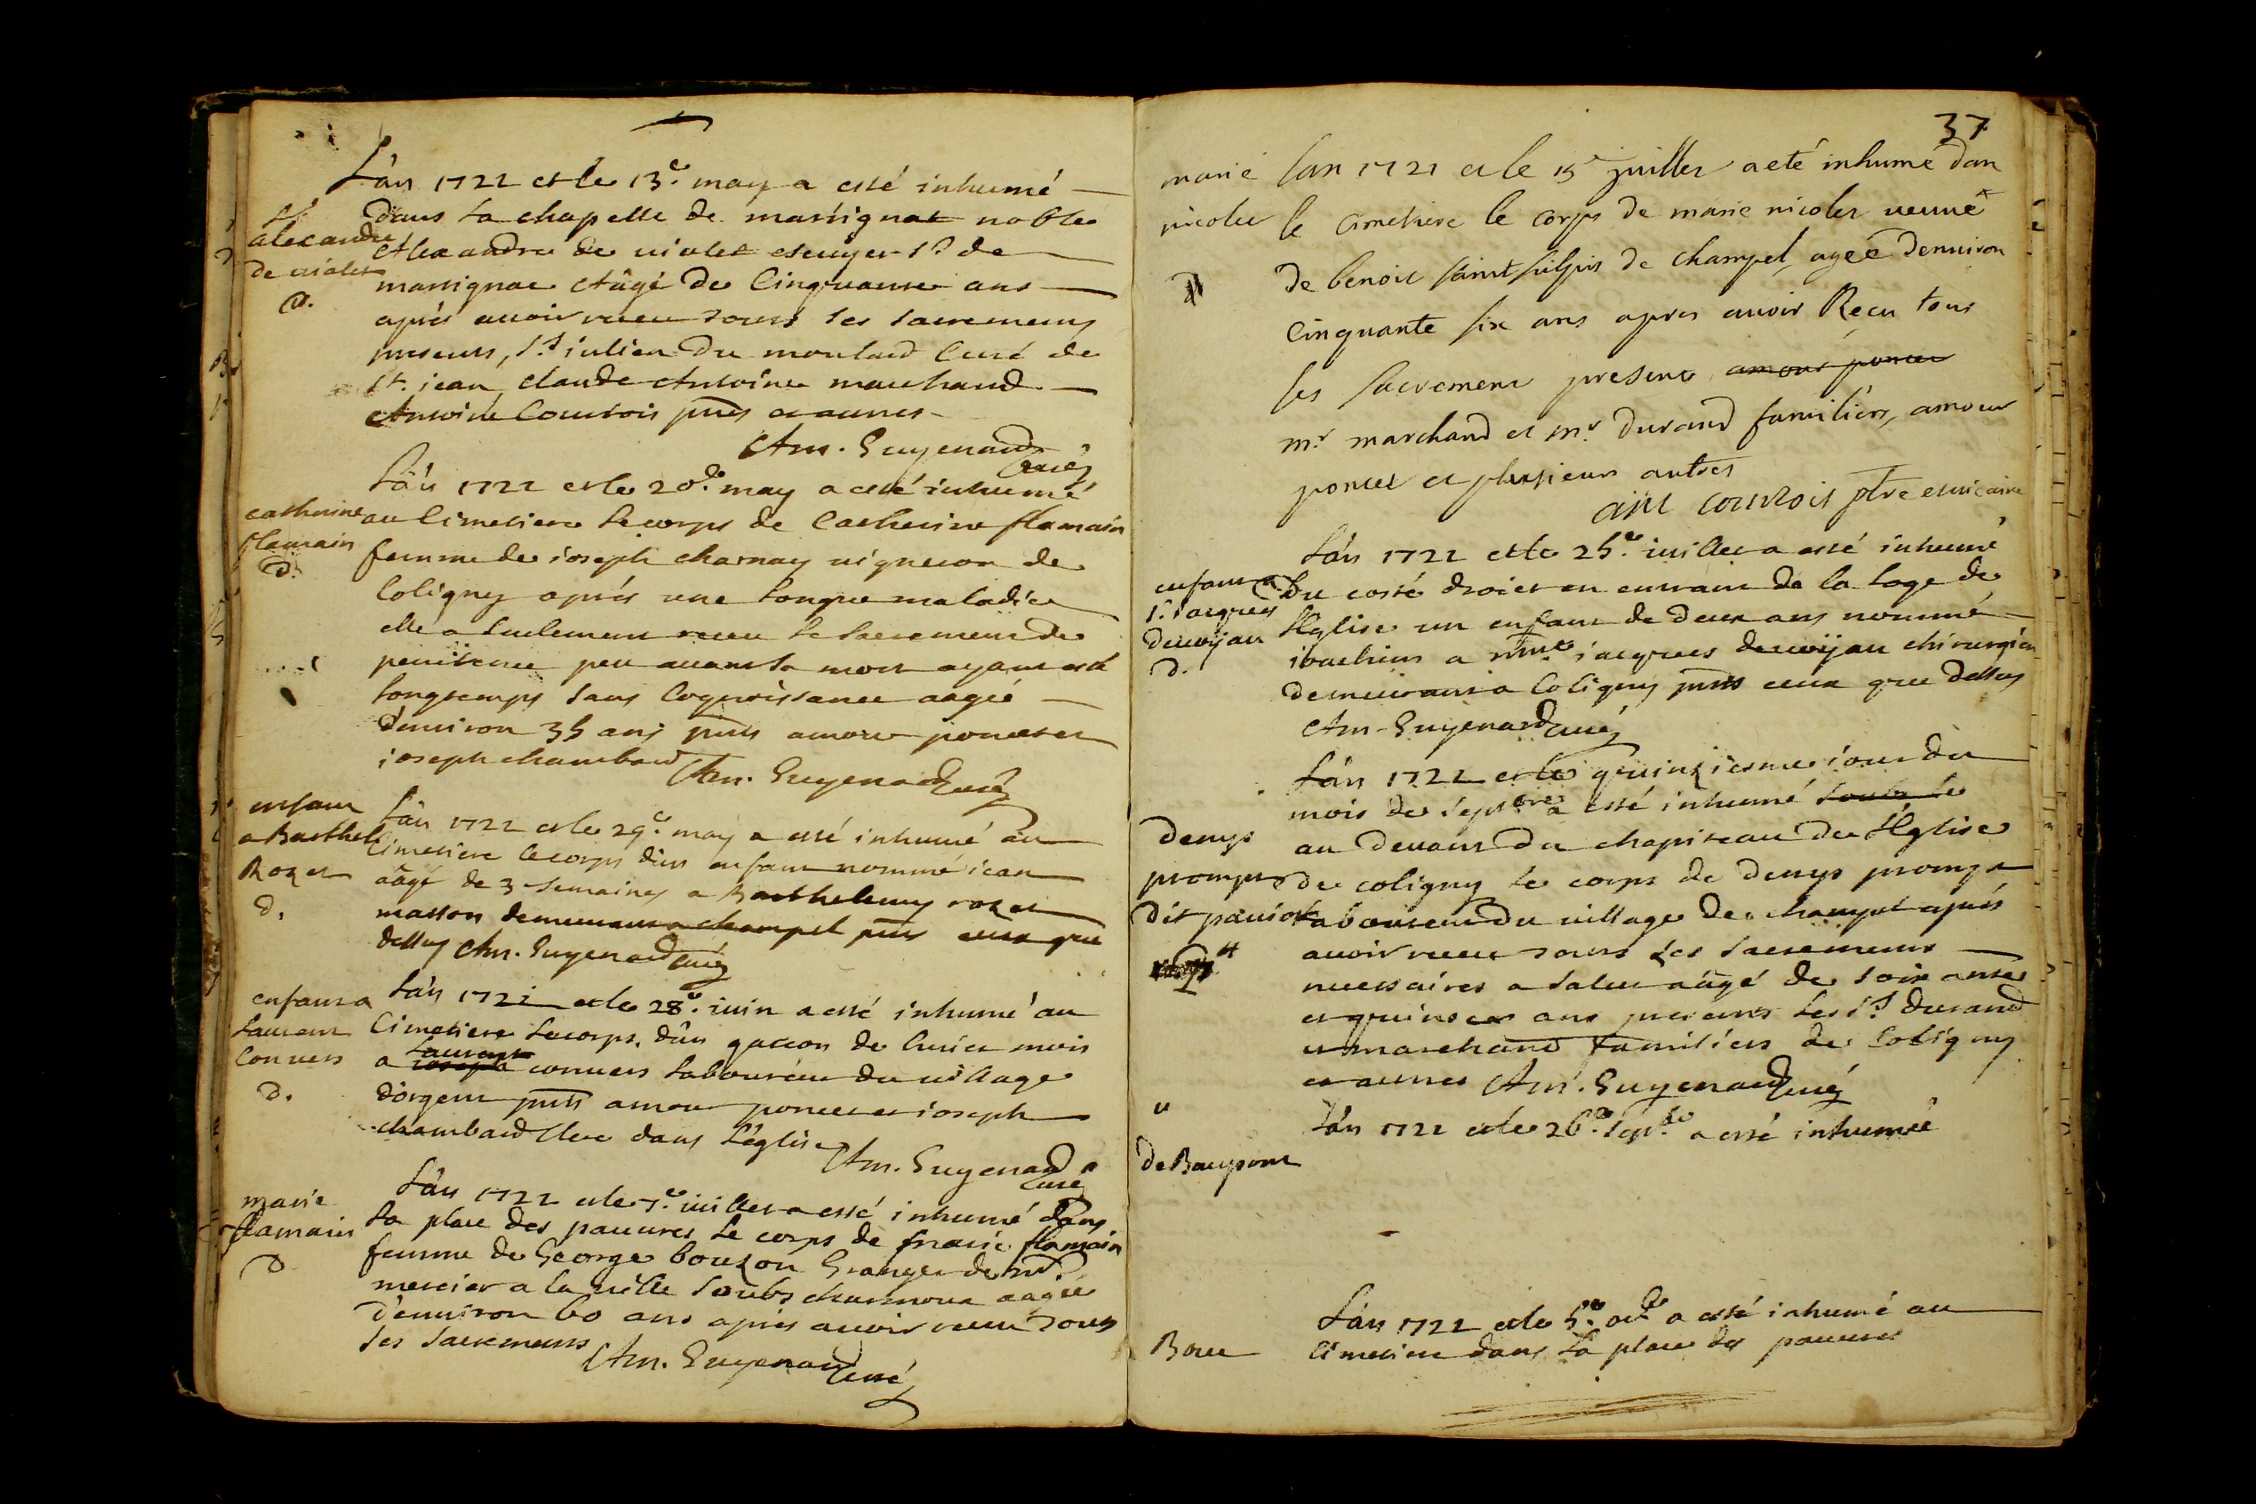 L'an 1722 et le 13e. may a esté inhumé
dans la chapelle de marsignat noble
Sr alexandre de violet d.
Alexandre de violet escuyer Sr de
marsignac aâgé de Cinquante ans
aprés auoir receu tous les sacremens
presents, Sr. iulien du moulard Curé de
St. jean, claude Antoine marchand
Antoine Courtois pnts et autres
Am. Guyenard curé
L'an 1722 et le 20e. may a esté inhumé
catherine flamain d.
au Cimetiere le corps de Catherine flamain
femme de ioseph charnay vigneron de
Coligny aprés une longue maladie
elle a seulement receu le sacrement de
penitence peu auant sa mort ayant esté
longtemps sans Cognoissance aagée
d'enuiron 35 ans pnts amour poncet et
ioseph chambard Am. Guyenard curé
enfant a Barthele Rozet d.
L'an 1722 et le 29e. may a esté inhumé au
Cimetiere le corps d'un enfant nommé iean
aâgé de 3 semaines a Barthelemy rozet
masson demeurant a champel pnts ceux que
dessus Am. Guyenard curé
enfant a Laurent Conuers d.
L'an 1722 et le 28e. iuin a esté inhumé au
Cimetiere le corps d'un garcon de huict mois
a Laurent ioseph conuers laboureur du uillage
d'orgent pnts amour poncet et ioseph
chambard clerc dans l'église
Am. Guyenard curé
marie flamain d
L'an 1722 et le 7e. iuillet a esté inhumé dans
la place des pauures le corps de marie flamain
femme de George bouzon Granger de mr.
mercier a la uille soubs charmoux aagée
d'enuiron 60 ans aprés auoir receu tous
les sacremens
Am. Guyenard curé
37
marie nicolet d
l'an 1721 et le 15e juillet a eté inhumé dan
le cimetiere le corps de marie nicolet veuue
de benoit saint sulpis de champel, agée denuiron
Cinquante six ans apres auoir Reçu tous
les sacrement present amour poncet
mr. marchand et mr. durand familiers, amour
poncet et plusieur autres
ant courtois ptre et uicaire
L'an 1722 et le 25e. iuillet a esté inhumé
enfant a Sr. iacques d.
du costé droict en entrant de la loge de
l'Eglise un enfant de deux ans nommé
ioachim a iacques chirurgien
demeurant a Coligny pnts ceux que dessus
Am. Guyenard curé
L'an 1722 et le quinziesme iour du
mois de septbre a esté inhumé soubs le
au deuant du chapiteau de l'Eglise
denys prompt dit
de coligny le corps de denys prompt
laboureur du uillage de champel aprés
auoir receu tous les sacremens
necessaires a salut aâgé de soixante
et quinze ans presents les Srs durand
et marchand familiers de Coligny
et autres Am. Guyenard curé
L'an 1722 et le 26e. septbre a esté inhumée
de Beaupont
L'an 1722 et le 5e. octbre a esté inhumé au
cimetiere dans la place des pauures